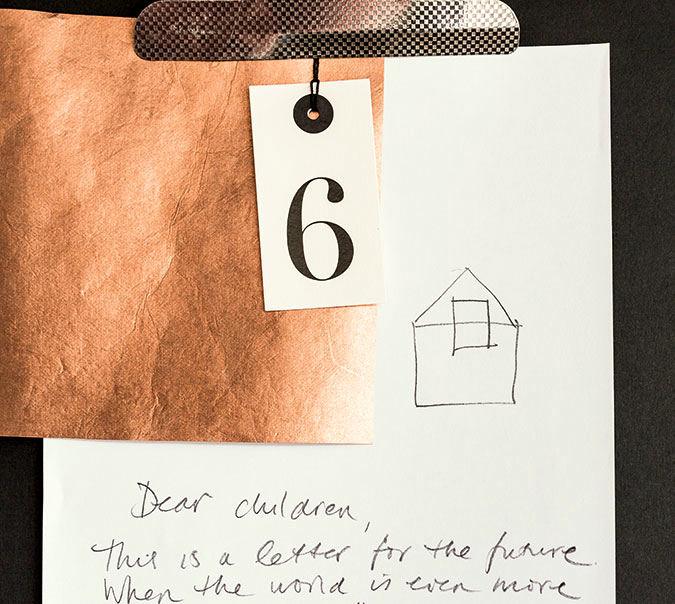 6
Dear children,
This is a letter for the future.
When the world is even more